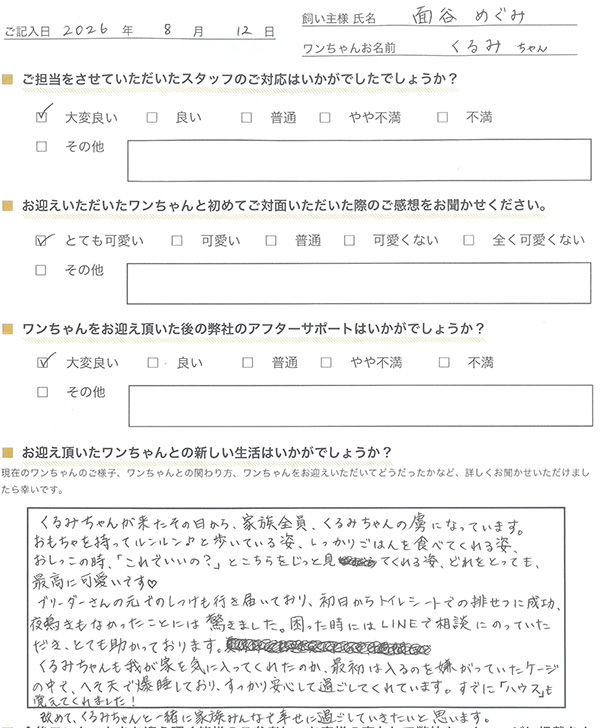 ご記入日 2026 年 8 月 12 日
飼い主様 氏名 面谷 めぐみ
ワンちゃんお名前 くるみ ちゃん
ご担当をさせていただいたスタッフのご対応はいかがでしたでしょうか？
大変良い 良い 普通 やや不満 不満
その他
お迎えいただいたワンちゃんと初めてご対面いただいた際のご感想をお聞かせください。
とても可愛い 可愛い 普通 可愛くない 全く可愛くない
その他
ワンちゃんをお迎え頂いた後の弊社のアフターサポートはいかがでしょうか？
大変良い 良い 普通 やや不満 不満
その他
お迎え頂いたワンちゃんとの新しい生活はいかがでしょうか？
現在のワンちゃんのご様子、ワンちゃんとの関わり方、ワンちゃんをお迎えいただいてどうだったかなど、詳しくお聞かせいただけまし
たら幸いです。
くるみちゃんが来たその日から、家族全員、くるみちゃんの虜になっています。
おもちゃを持ってルンルン♪と歩いている姿、しっかりごはんを食べてくれる姿、
おしっこの時、「これでいいの？」とこちらをじっと見てくれる姿、どれをとっても、
最高に可愛いです♡
ブリーダーさんの元でのしつけも行き届いており、初日からトイレシートでの排せつに成功、
夜鳴きもなかったことには驚きました。困った時にはLINEで相談にのっていた
だき、とても助かっております。
くるみちゃんも我が家を気に入ってくれたのか、最初は入るのを嫌がっていたケージ
の中で、へそ天で爆睡しており、すっかり安心して過ごしてくれています。すでに「ハウス」も
覚えてくれました！
改めて、くるみちゃんと一緒に家族みんなで幸せに過ごしていきたいと思います。